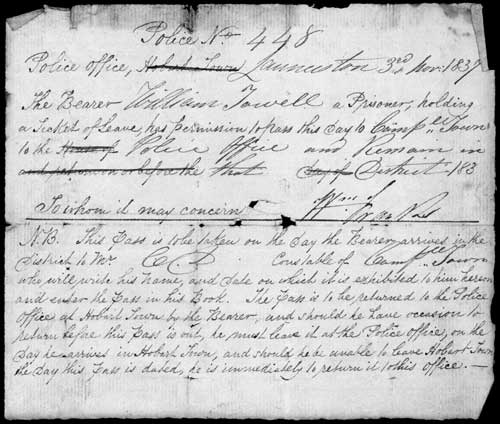 Police No. 448
Police Office, Hobart Town, Launceston 3rd Nov. 1837
The Bearer William Towell a Prisoner, holding
a Ticket of Leave, has permission to pass this Day to Campll Town
to the House of Police Office and Remain in
and return on or before the that day of District 183
To whom it may concern
N.B. This Pass is to be taken on the Day the Bearer arrives in the
District to Mr. C D Constable of Campll Town
who will write his name, and date on which it is exhibited to him hereon
and enter the Pass in his Book. The Pass is to be returned to the Police
Office at Hobart Town by the Bearer, and should he have occasion to
return before this Pass is out, he must leave it at the Police Office, on the
Day he arrives in Hobart Town, and should he be unable to leave Hobart Town
the Day this Pass is dated, he is immediately to return it to this Office.